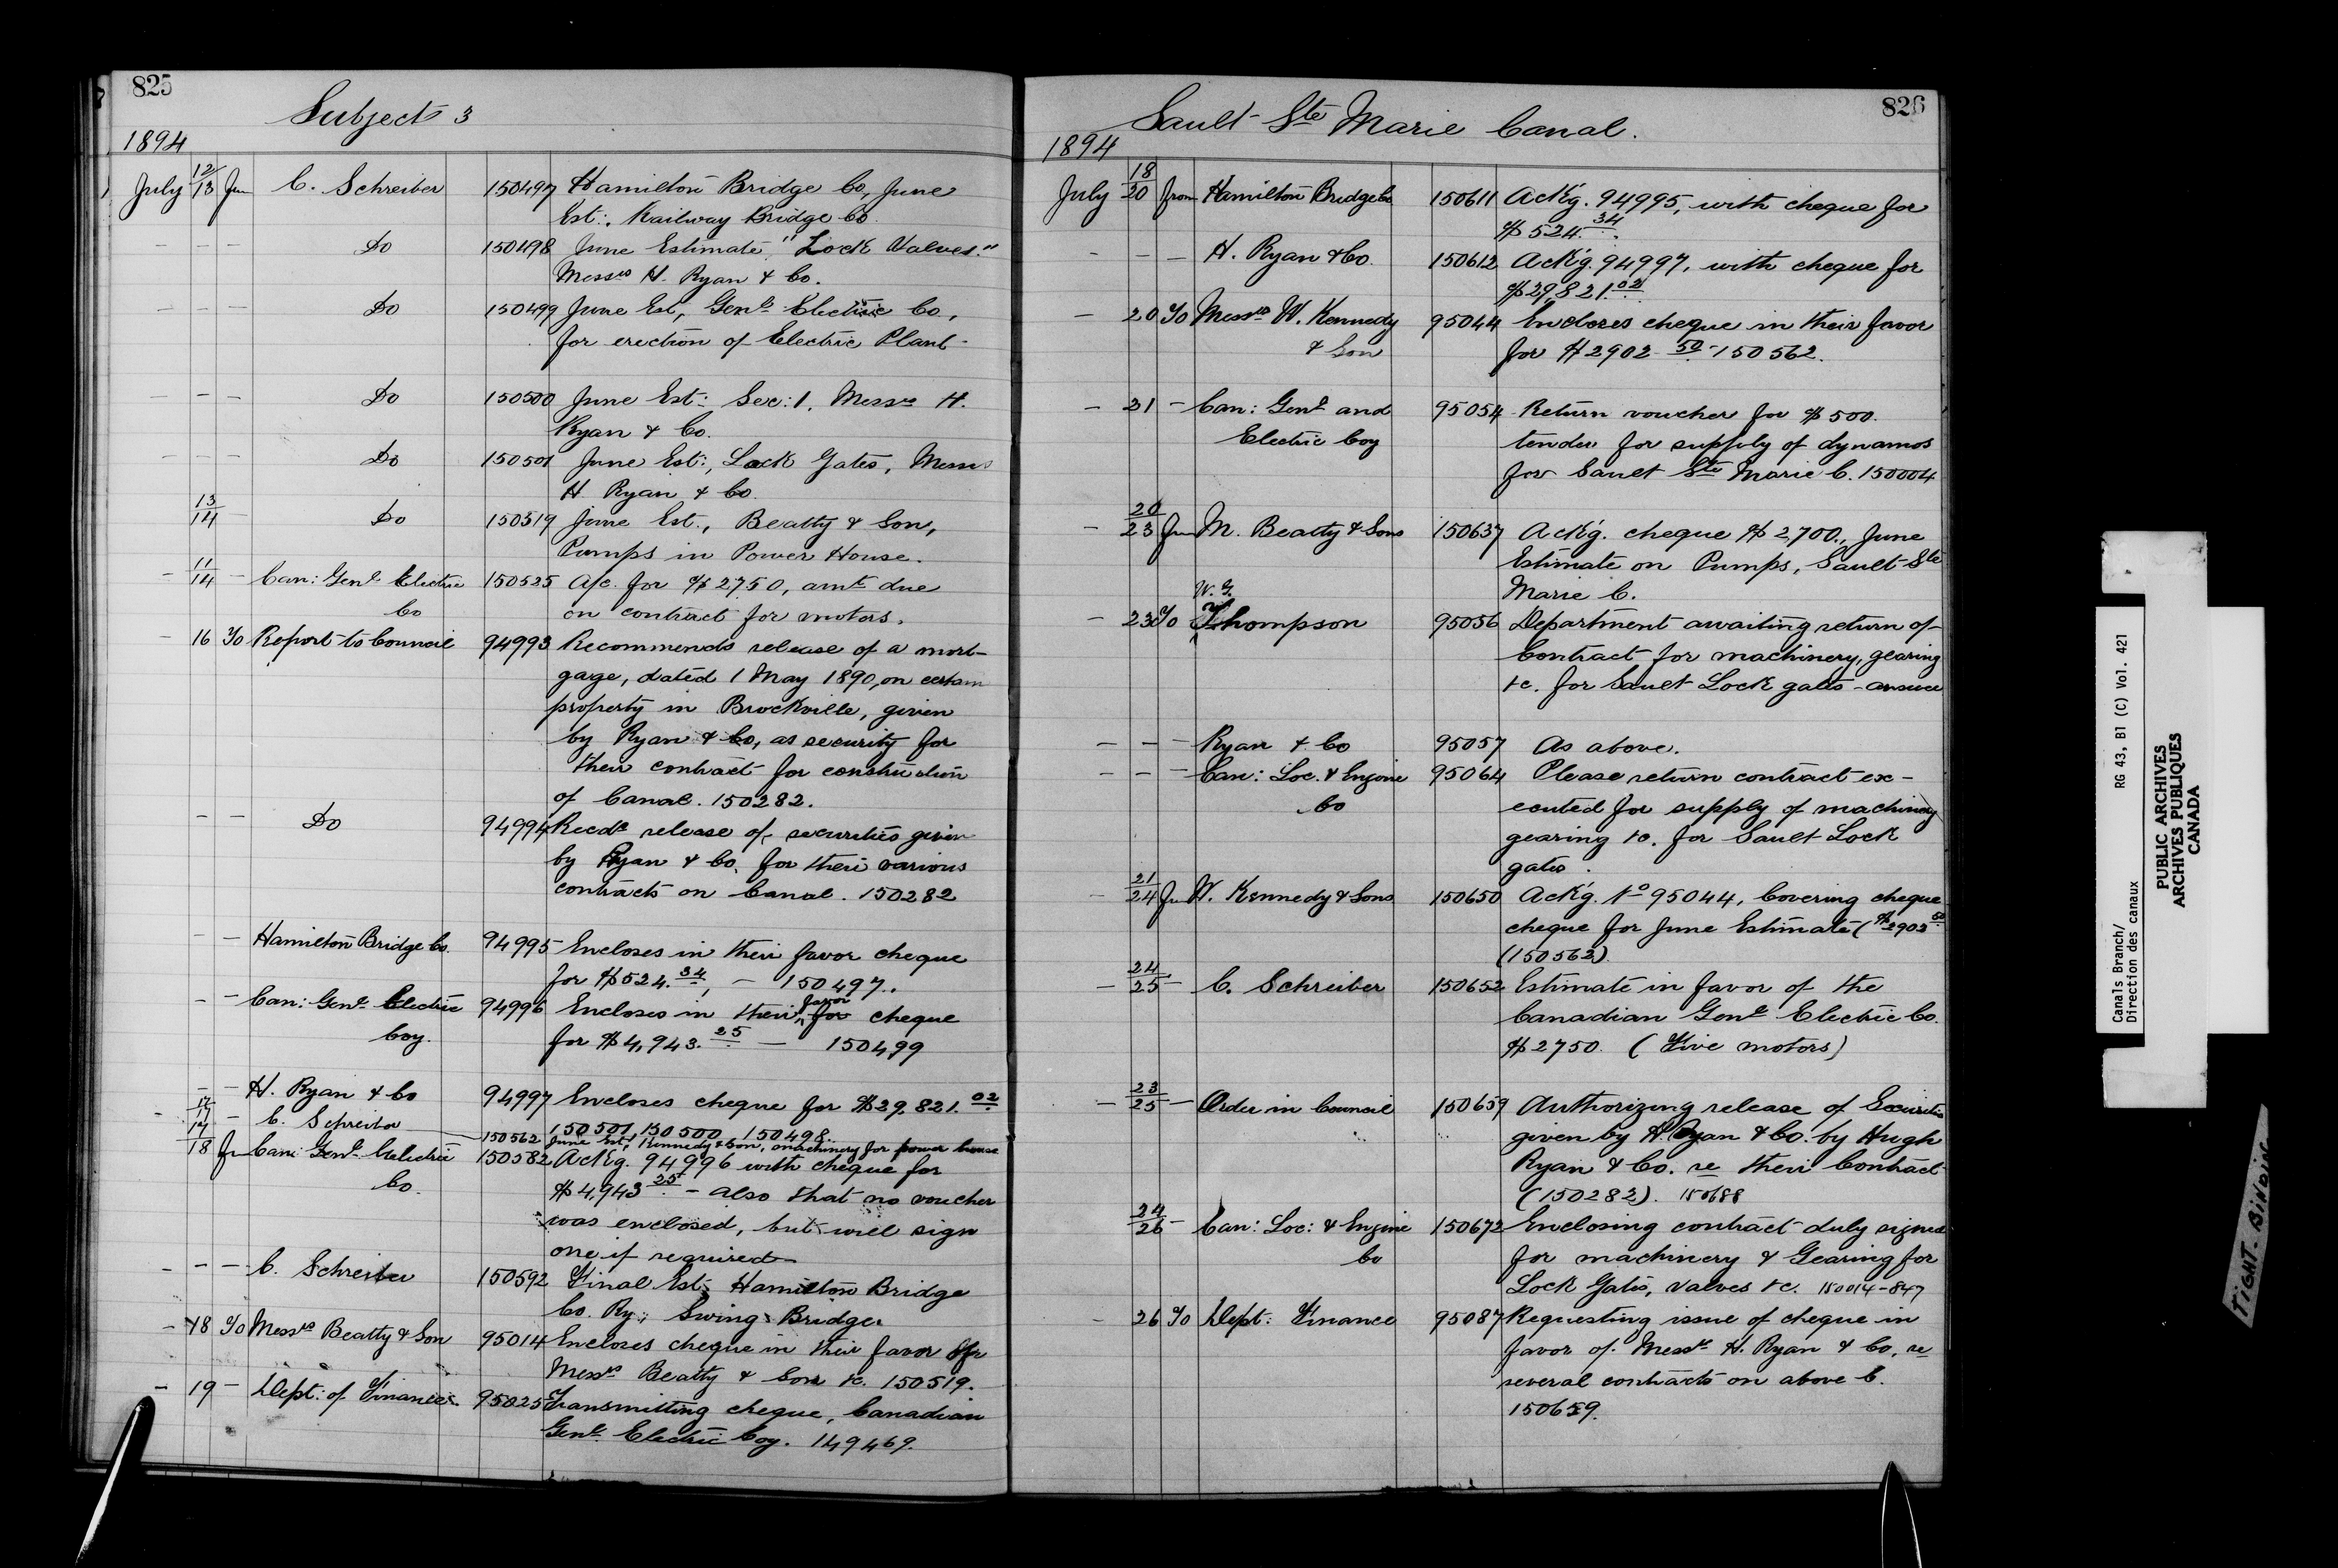 825
Subject 3
1894
July 12/13 fm C. Schreiber 150497 Hamilton Bridge Co, June
Est:, Railway Bridge Co.
— — — Do 150498 June Estimate, "Lock Valves."
Messrs H. Ryan & Co.
— — — Do 150499 June Est, Genl Electric Co,
for erection of Electric Plant
— — — Do 150500 June Est: Sec: 1, Messrs H.
Ryan & Co.
— — — Do 150501 June Est:, Lock Gates, Messrs
H Ryan & Co.
13/14 — Do 150519 June Est., Beatty & Son,
Pumps in Power House.
— 11/14 — Can: Genl Electric 150525 A/c. for $2750, amt due
Co on contract for motors.
— 16 To Report to Council 94993 Recommends release of a mort-
gage, dated 1 May 1890, on certain
property in Brockville, given
by Ryan & Co, as security for
their contract for construction
of Canal. 150282.
— — Do 94994 Recds release of securities given
by Ryan & Co. for their various
contracts on Canal. 150282
— — Hamilton Bridge Co. 94995 Encloses in their favor cheque
for $524.34, — 150497.
— — Can: Genl Electric 94996 Encloses in their favor for cheque
Coy. for $4,943.25 — 150499
— — H. Ryan & Co 94997 Encloses cheque for $29.821.02
150501, 150500, 150498.
— 12/17 — C. Schreiber 150562 June Est, Kennedy & Son, machinery for power house
17/18 fm Can: Genl Electric 150582 Ackg. 94996 with cheque for
Co. $4,943 25 — also that no voucher
was enclosed, but will sign
one if required
— — — C. Schreiber 150592 Final Est: Hamilton Bridge
Co. Ry: Swing Bridge.
— 18 To Messrs Beatty & Son 95014 Encloses cheque in their favor for
Messrs Beatty & Son &c. 150519.
— 19 — Dept: of Finance. 95025 Transmitting cheque, Canadian
Genl Electric Coy. 149469.
826
Sault Ste Marie Canal.
1894
July 18/20 from Hamilton Bridge Co 150611 Ackg. 94995, with cheque for
$524.34.
— — — H. Ryan & Co. 150612 Ackg. 94997, with cheque for
$29,821.02
— 20 To Messrs W. Kennedy 95044 Encloses cheque in their favor
& Son for $2902 50 - 150562.
— 21 — Can: Genl and 95054 Return voucher for $500.
Electric Coy tender for supply of dynamos
for Sault Ste Marie C. 150004
— 20/23 fm M. Beatty & Sons 150637 Ackg. cheque $2,700., June
Estimate on Pumps, Sault Ste
Marie C.
W. G.
— 23 To Thompson 95056 Department awaiting return of
Contract for machinery, gearing
&c. for Sault Lock gates - answer
— — — Ryan & Co 95057 As above.
— — — Can: Loc. & Engine 95064 Please return contract ex-
Co ecuted for supply of machinery
gearing &c. for Sault Lock
gates.
— 21/24 fm W. Kennedy & Sons 150650 Ackg. No 95044, Covering cheque
cheque for June Estimate ($2902 50
(150562)
— 24/25 — C. Schreiber 150652 Estimate in favor of the
Canadian Genl Electric Co.
$2750. (Five motors)
— 23/25 — Order in Council 150659 Authorizing release of Securities
given by H. Ryan & Co. by Hugh
Ryan & Co. re their Contract
(150282). 150688
24/26 — Can: Loc: & Engine 150672 Enclosing contract duly signed
Co for machinery & Gearing for
Lock Gates, valves &c. 150014-847
— 26 To Dept: Finance 95087 Requesting issue of cheque in
favor of Messrs H. Ryan & Co, re
several contracts on above C.
150659.
Canals Branch/ RG 43, B1 (C) Vol. 421
Direction des canaux
PUBLIC ARCHIVES
ARCHIVES PUBLIQUES
CANADA
TIGHT BINDING